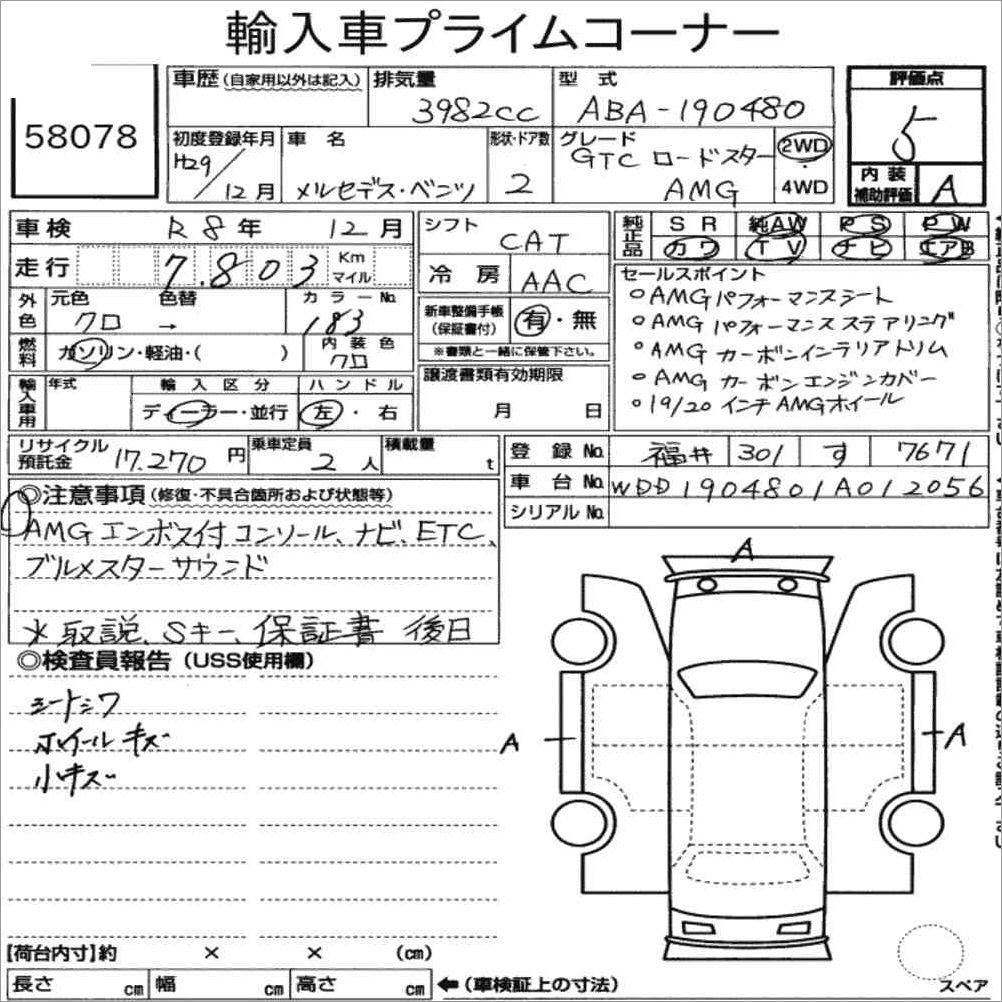 輸入車プライムコーナー
58078
車歴 (自家用以外は記入) 排気量 3982cc 型式 ABA-190480
評価点 5
初度登録年月 H29/12月 車名 メルセデス・ベンツ 形状・ドア数 2 グレード GTC ロードスター AMG 2WD・4WD
内装補助評価 A
車検 R8年 12月
走行 7.803 Km マイル
外色 元色 クロ 色替 → カラーNo. 183
燃料 ガソリン・軽油・( ) 内装色 クロ
輸入車用 年式 輸入区分 ディーラー・並行 ハンドル 左・右
シフト CAT
冷房 AAC
新車整備手帳 (保証書付) 有・無
※書類と一緒に保管下さい。
譲渡書類有効期限 月 日
純正品 SR 純AW PS PW
カワ TV ナビ エアB
セールスポイント
○AMGパフォーマンスシート
○AMGパフォーマンスステアリング
○AMG カーボンインテリアトリム
○AMG カーボンエンジンカバー
○19/20インチAMGホイール
リサイクル預託金 17.270円 乗車定員 2人 積載量 t
登録No. 福井 301 す 7671
車台No. WDD1904801A012056
シリアルNo.
◎注意事項 (修復・不具合箇所および状態等)
AMGエンボス付コンソール、ナビ、ETC、
ブルメスターサウンド
※取説、Sキー、保証書 後日
◎検査員報告 (USS使用欄)
シートシワ
ホイールキズ
小キズ
A
A
A
【荷台内寸】約 × × (cm)
長さ cm 幅 cm 高さ cm ←(車検証上の寸法)
スペア